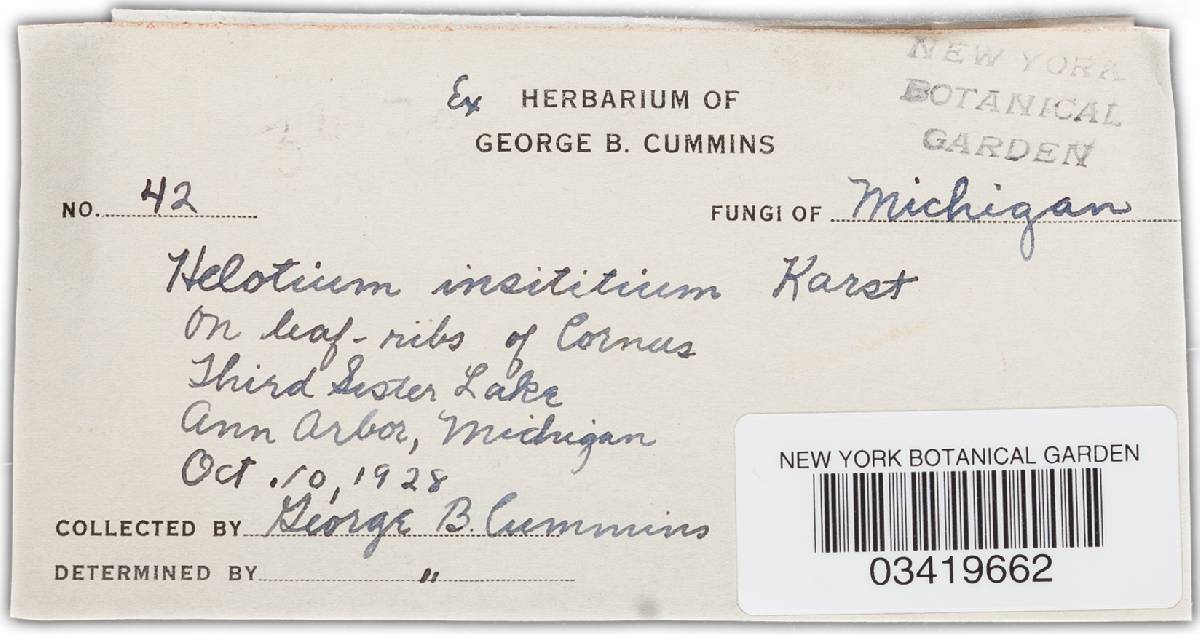 NEW YORK
BOTANICAL
GARDEN
Ex HERBARIUM OF
GEORGE B. CUMMINS
NO. 42
FUNGI OF Michigan
Helotium insititium Karst
On leaf-ribs of Cornus
Third Sister Lake
Ann Arbor, Michigan
Oct. 10, 1928
COLLECTED BY George B. Cummins
DETERMINED BY "
NEW YORK BOTANICAL GARDEN
03419662